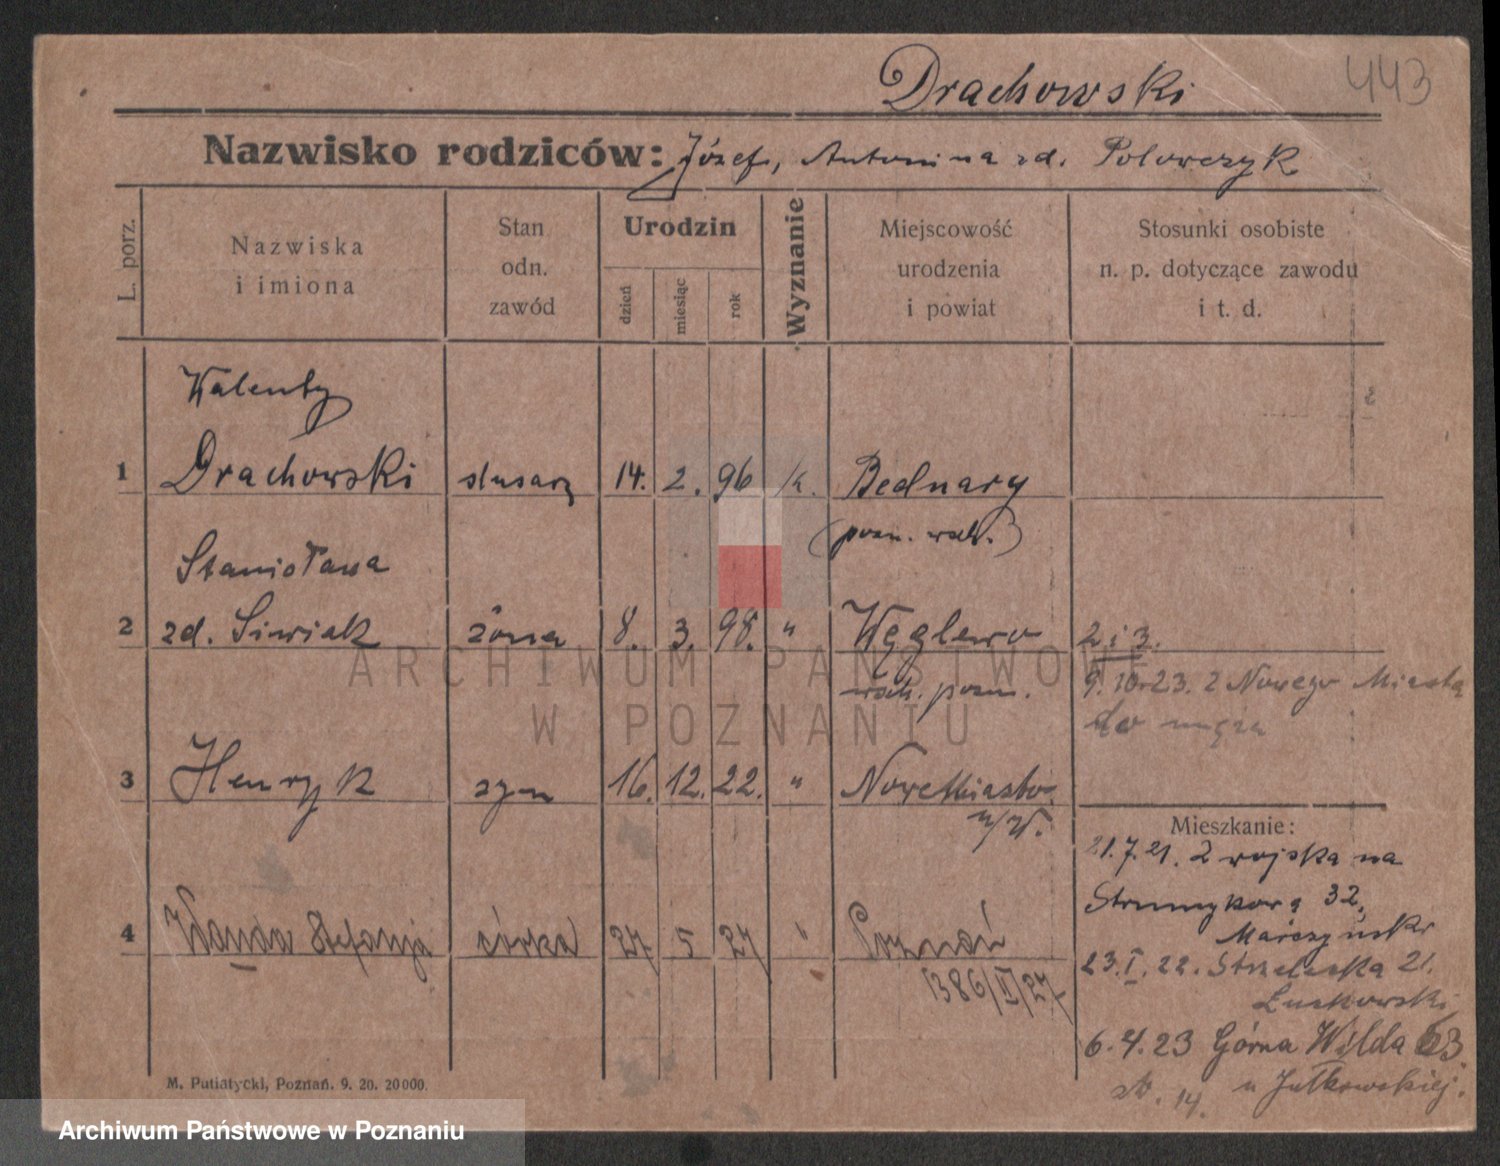 Drachowski
443
Nazwisko rodziców: Józef, Antonina zd. Polowczyk
L. porz.
Nazwiska
i imiona
Stan
odn.
zawód
Urodzin
dzień
miesiąc
rok
Wyznanie
Miejscowość
urodzenia
i powiat
Stosunki osobiste
n. p. dotyczące zawodu
i t. d.
Walenty
1 Drachowski ślusarz 14. 2. 96 k. Bednary
(pozn. wsch.)
Stanisława
2 zd. Siwiak żona 8. 3. 98. " Węglewo 2 i 3.
wsch. pozn. 9. 10. 23. z Nowego Miasta
do męża
3 Henryk syn 16. 12. 22. " Nowemiasto
n/W.
Mieszkanie:
21. 7. 21. z wojska na
Strumykowa 32,
4 Wanda Stefanja córka 27 5 27 " Poznań
Marczyński
1386/II/27
23. I. 22. Strzelecka 21.
Łuckowski
6. 4. 23 Górna Wilda 63
u Jutkowskiej.
14.
M. Putiatycki, Poznań. 9. 20. 20000.
ARCHIWUM PAŃSTWOWE
W POZNANIU
Archiwum Państwowe w Poznaniu